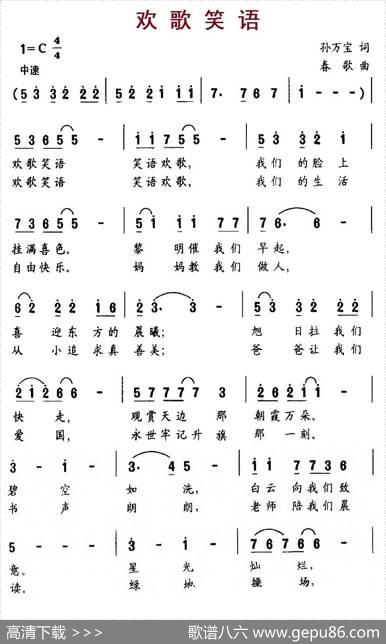 欢歌笑语
1=C 4/4
孙万宝 词
中速
春歌 曲
(5 3 3 2 2 2 | 5 5 1 2 1 2 | 7. 7 6 7 | 1 - - -) |
5 3 6 5 5 | 1 1 7 5 5 | 5 3 3 2 1 |
欢歌笑语 笑语欢歌, 我们的脸上
欢歌笑语 笑语欢歌, 我们的生活
7 3 6 5 5 | 5 1 1 1 7 7 | 6. 6 - |
挂满喜色。 黎明催我们 早起,
自由快乐。 妈妈教我们 做人,
6 2 2 2 1 6 | 2 3. 3 - | 5 3 2 2 2 |
喜迎东方的 晨曦; 旭日拉我们
从小追求真 善美; 爸爸让我们
2 1 2 6 6 | 5 7 7 7 7 3 | 2 6 2 1 1 |
快走, 观赏天边那 朝霞万朵。
爱国, 永世牢记升旗 那一刻。
3 - 1 - | 3. 4 5 - | 1 1 7 7 3 6 |
碧空 如洗, 白云向我们致
书声 朗朗, 老师陪我们晨
5 - - - | 3 - 2 - | 0 7 6 6 - |
意。 星光 灿烂,
读。 绿地 操场;
高清下载 >>>
歌谱八六 www.gepu86.com